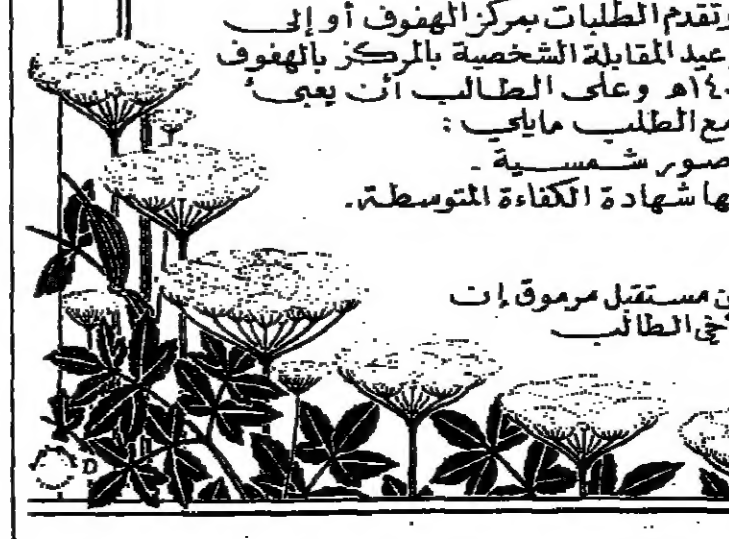 وتقدم الطلبات بمركز الهفوف أو إلى
وعيد المقابلة الشخصية بالمركز بالهفوف
١٤٠هـ وعلى الطالب أن يعبىء
مع الطلب مايلي :
صور شمسية .
ها شهادة الكفاءة المتوسطة .
ن مستقبل مرموق إن
أخي الطالب
D